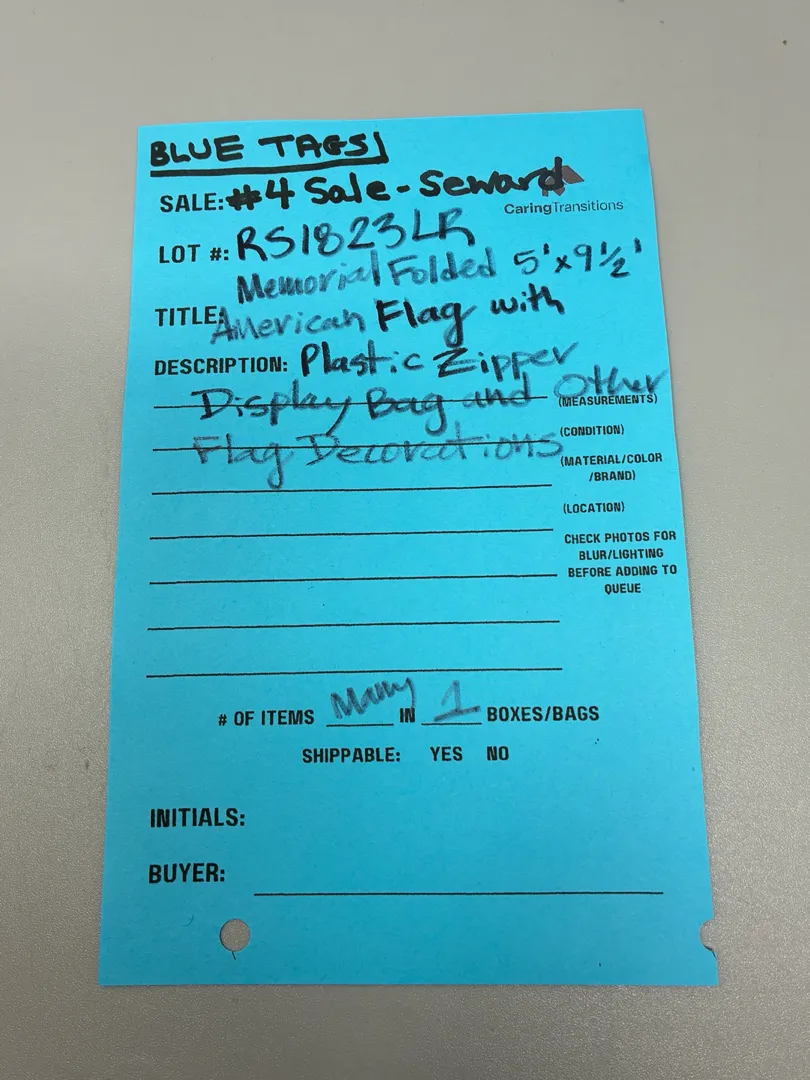 BLUE TAGS
SALE: #4 Sale - Seward
CaringTransitions
LOT #: RS1823LR
Memorial Folded 5'x9½'
TITLE: American Flag with
DESCRIPTION: Plastic Zipper
Display Bag and Other
(MEASUREMENTS)
(CONDITION)
Flag Decorations
(MATERIAL/COLOR
/BRAND)
(LOCATION)
CHECK PHOTOS FOR
BLUR/LIGHTING
BEFORE ADDING TO
QUEUE
# OF ITEMS Many IN 1 BOXES/BAGS
SHIPPABLE: YES NO
INITIALS:
BUYER: